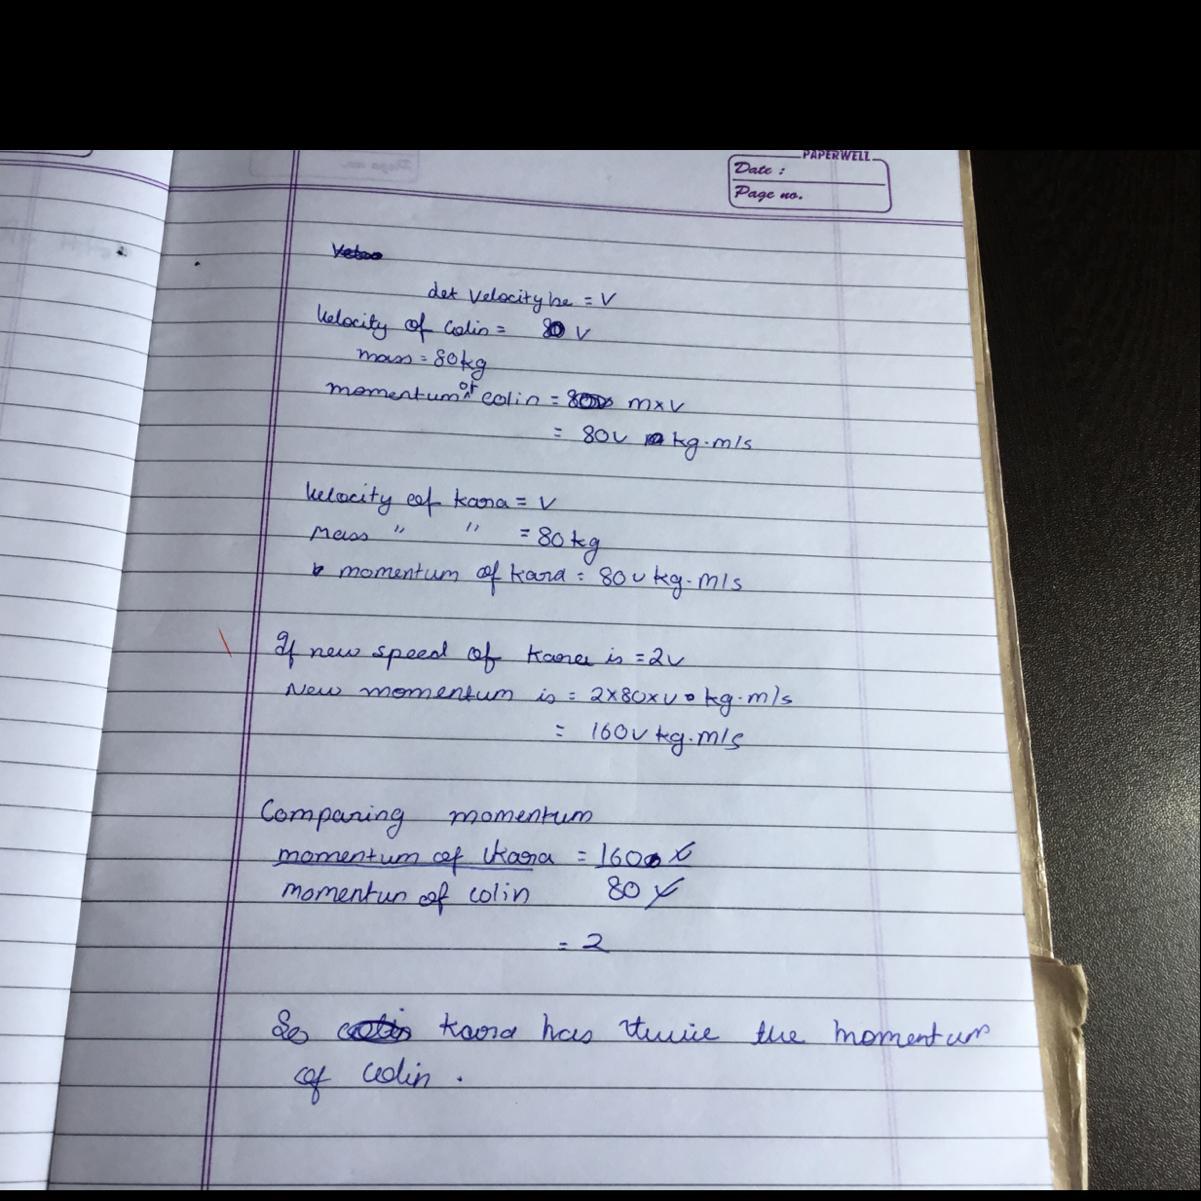 PAPERWELL
Date :
Page no.
Let velocity be = V
Velocity of Colin = V
mass = 80kg
momentum of colin = m×v
= 80v kg.m/s
Velocity of kara = v
Mass " " = 80kg
momentum of kara = 80v kg.m/s
If new speed of Kara is = 2v
New momentum is = 2×80×v kg.m/s
= 160v kg.m/s
Comparing momentum
momentum of Kara = 160 v
momentum of colin 80 v
= 2
So kara has twice the momentum
of colin .